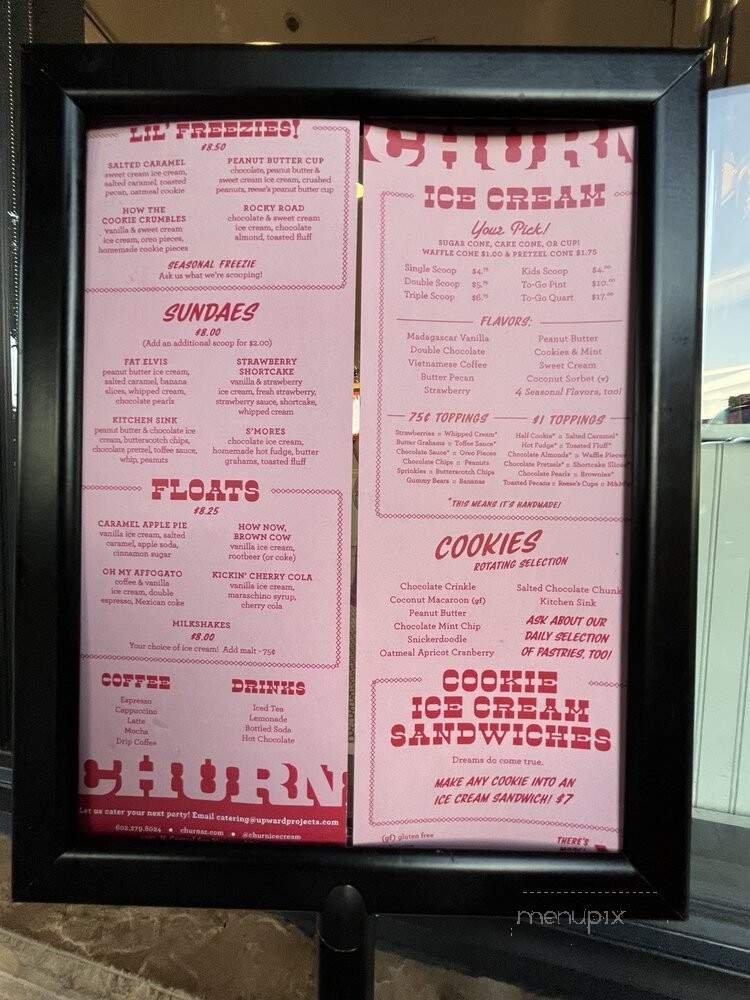 LIL' FREEZIES!
$8.50
SALTED CARAMEL
sweet cream ice cream,
salted caramel, toasted
pecan, oatmeal cookie
PEANUT BUTTER CUP
chocolate, peanut butter &
sweet cream ice cream, crushed
peanuts, reese's peanut butter cup
HOW THE
COOKIE CRUMBLES
vanilla & sweet cream
ice cream, oreo pieces,
homemade cookie pieces
ROCKY ROAD
chocolate & sweet cream
ice cream, chocolate
almond, toasted fluff
SEASONAL FREEZIE
Ask us what we're scooping!
SUNDAES
$8.00
(Add an additional scoop for $2.00)
FAT ELVIS
peanut butter ice cream,
salted caramel, banana
slices, whipped cream,
chocolate pearls
STRAWBERRY
SHORTCAKE
vanilla & strawberry
ice cream, fresh strawberry,
strawberry sauce, shortcake,
whipped cream
KITCHEN SINK
peanut butter & chocolate ice
cream, butterscotch chips,
chocolate pretzel, toffee sauce,
whip, peanuts
S'MORES
chocolate ice cream,
homemade hot fudge, butter
grahams, toasted fluff
FLOATS
$8.25
CARAMEL APPLE PIE
vanilla ice cream, salted
caramel, apple soda,
cinnamon sugar
HOW NOW,
BROWN COW
vanilla ice cream,
rootbeer (or coke)
OH MY AFFOGATO
coffee & vanilla
ice cream, double
espresso, Mexican coke
KICKIN' CHERRY COLA
vanilla ice cream,
maraschino syrup,
cherry cola
MILKSHAKES
$8.00
Your choice of ice cream! Add malt ~75¢
COFFEE
Espresso
Cappuccino
Latte
Mocha
Drip Coffee
DRINKS
Iced Tea
Lemonade
Bottled Soda
Hot Chocolate
CHURN
Let us cater your next party! Email catering@upwardprojects.com
602.279.8024 • churnaz.com • @churnicecream
CHURN
ICE CREAM
Your Pick!
SUGAR CONE, CAKE CONE, OR CUP!
WAFFLE CONE $1.00 & PRETZEL CONE $1.75
Single Scoop $4.75
Double Scoop $5.75
Triple Scoop $6.75
Kids Scoop $4.00
To-Go Pint $10.00
To-Go Quart $17.00
FLAVORS:
Madagascar Vanilla
Double Chocolate
Vietnamese Coffee
Butter Pecan
Strawberry
Peanut Butter
Cookies & Mint
Sweet Cream
Coconut Sorbet (v)
4 Seasonal Flavors, too!
75¢ TOPPINGS
Strawberries Whipped Cream*
Butter Grahams Toffee Sauce*
Chocolate Sauce* Oreo Pieces
Chocolate Chips Peanuts
Sprinkles Butterscotch Chips
Gummy Bears Bananas
$1 TOPPINGS
Half Cookie* Salted Caramel*
Hot Fudge* Toasted Fluff*
Chocolate Almonds* Waffle Pieces
Chocolate Pretzels* Shortcake Slice
Chocolate Pearls Brownies*
Toasted Pecans Reese's Cups M&M's
*THIS MEANS IT'S HANDMADE!
COOKIES
ROTATING SELECTION
Chocolate Crinkle
Coconut Macaroon (gf)
Peanut Butter
Chocolate Mint Chip
Snickerdoodle
Oatmeal Apricot Cranberry
Salted Chocolate Chunk
Kitchen Sink
ASK ABOUT OUR
DAILY SELECTION
OF PASTRIES, TOO!
COOKIE
ICE CREAM
SANDWICHES
Dreams do come true.
MAKE ANY COOKIE INTO AN
ICE CREAM SANDWICH! $7
(gf) gluten free
THERE'S
menupix